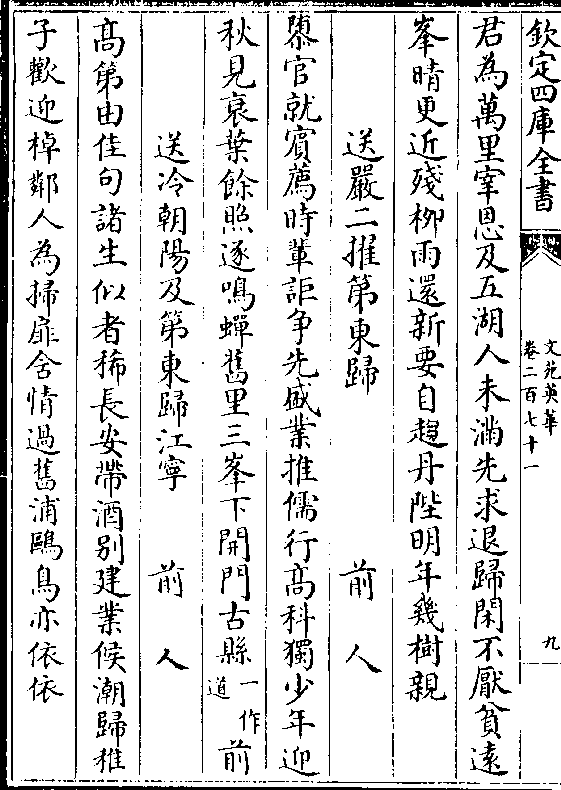 欽定四庫全書
文苑英華
卷二百七十一
九
君為萬里宰恩及五湖人未滿先求退歸閑不厭貧遠
峯晴更近殘柳雨還新要自趨丹陛明年幾樹親
送嚴二擢第東歸　前人
縻官就賓薦時輩詎爭先盛業推儒行高科獨少年迎
秋見衰葉餘照逐鳴蟬舊里三峯下開門古縣一作道前
送冷朝陽及第東歸江寧　前人
高第由佳句諸生似者稀長安帶酒别建業候潮歸稚
子歡迎棹鄰人為掃扉含情過舊浦鷗鳥亦依依